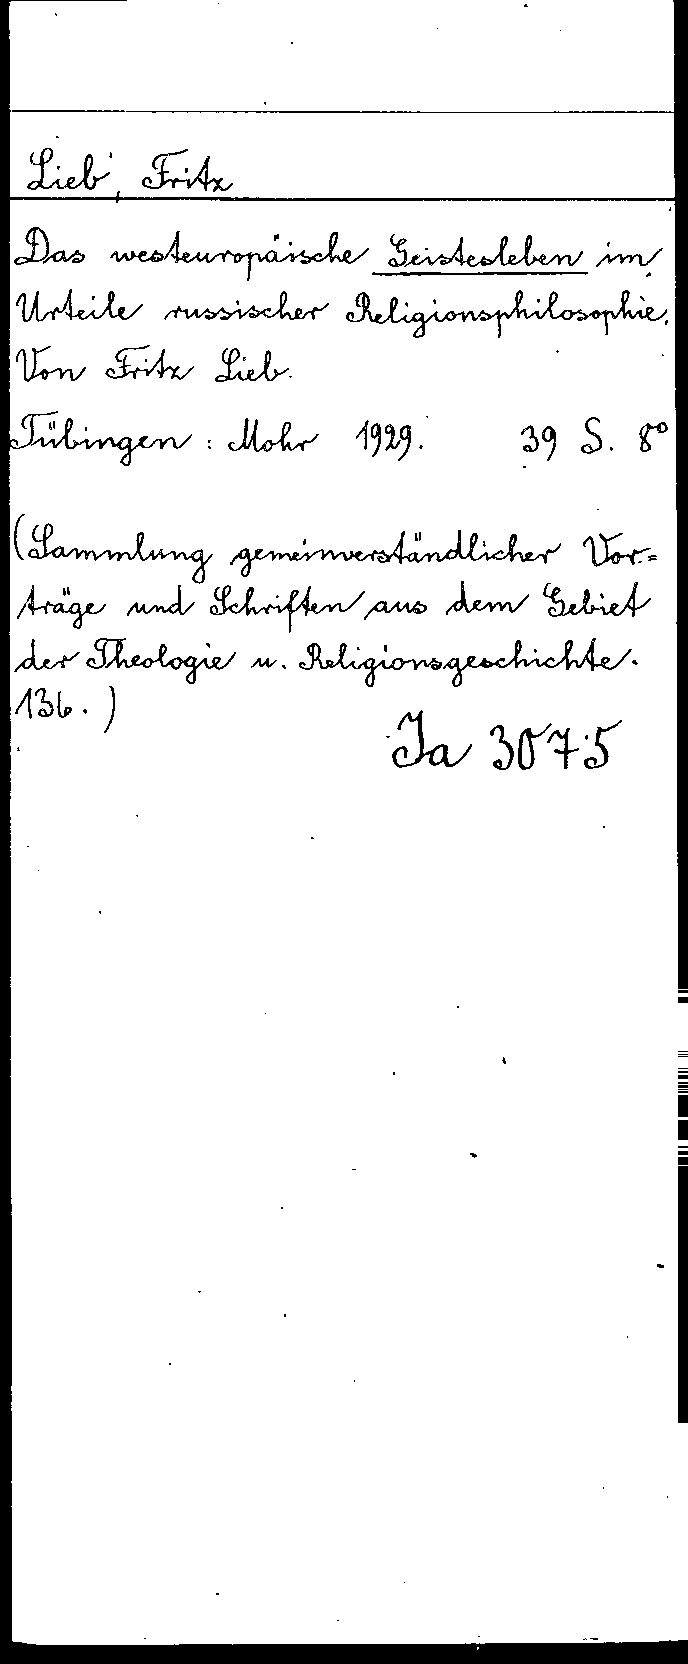 Lieb, Fritz
Das westeuropäische Geistesleben im
Urteile russischer Religionsphilosophie.
Von Fritz Lieb.
Tübingen: Mohr 1929. 39 S. 8°
(Sammlung gemeinverständlicher Vor-
träge und Schriften aus dem Gebiet
der Theologie u. Religionsgeschichte.
136.)
Ja 3075